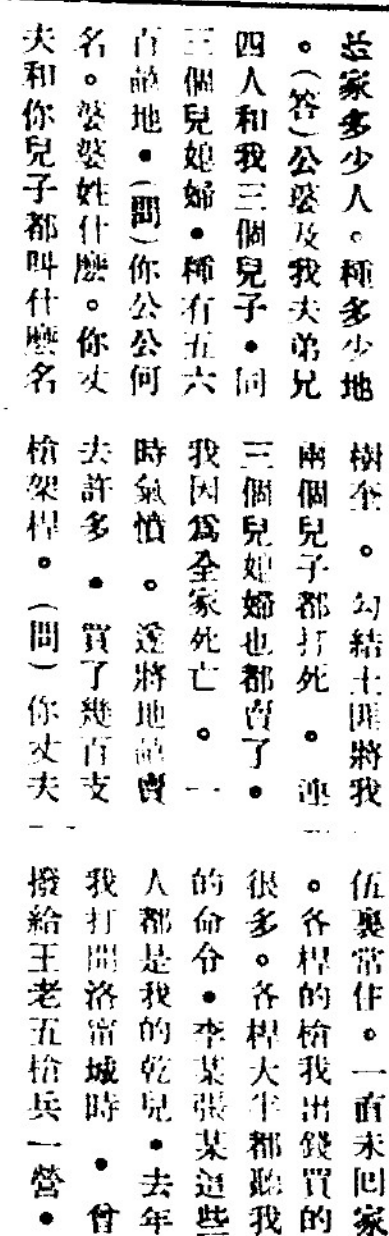 共家多少人。種多少地
。(答)公婆及我夫弟兄
四人和我三個兒子●同
三個兒媳婦●種有五六
百畝地●(問)你公公何
名。婆婆姓什麼。你丈
夫和你兒子都叫什麼名
樹奎。勾結土匪將我
兩個兒子都打死。連
三個兒媳婦也都賣了●
我因爲全家死亡。一
時氣憤。遂將地畝賣
去許多●買了幾百支
槍架桿。(問)你丈夫
伍裏當住。一直未回家
。各桿的槍我出錢買的
很多。各桿大半都聽我
的命令●李某張某這些
人都是我的乾兒●去年
我打開洛甯城時●曾
撥給王老五槍兵一營●